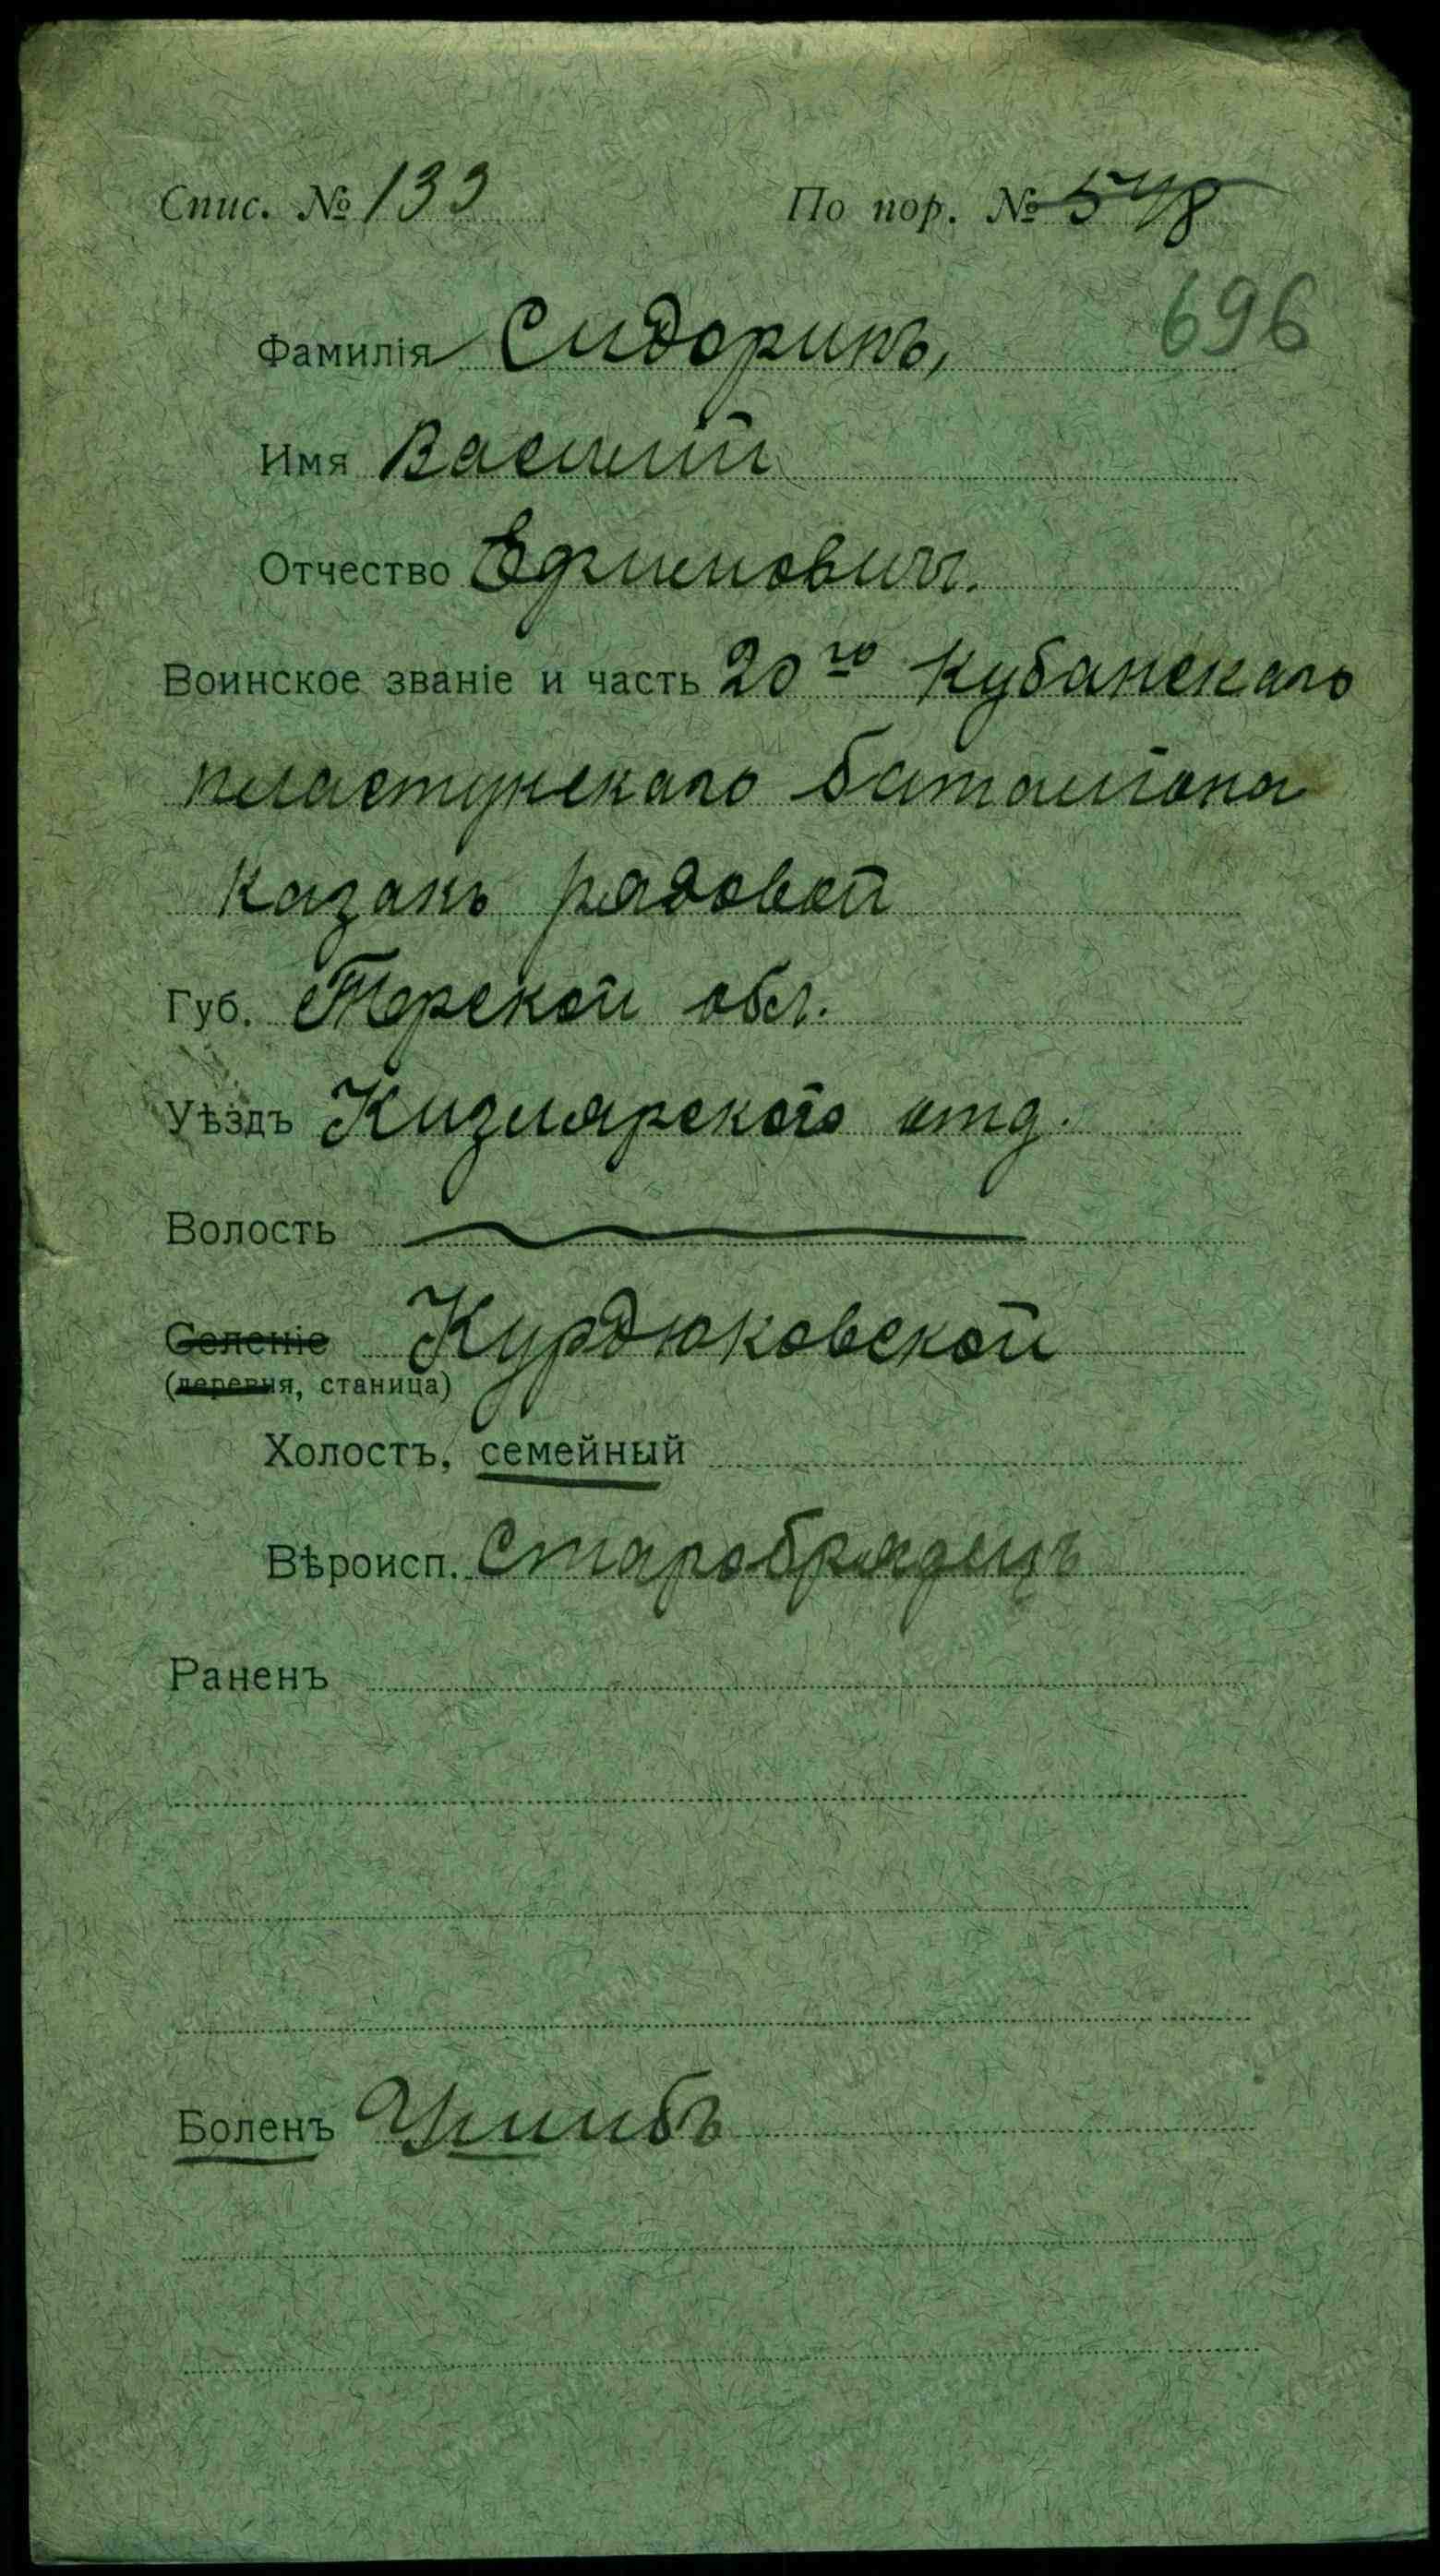 Спис. № 133 По пор. № 548
696
Фамилія Сидоринъ,
Имя Василий
Отчество Ефимовичъ.
Воинское званіе и часть 20го Кубанскаго
пластунскаго баталіона
казакъ рядовой
Губ. Терской обл.
Уѣздъ Кизлярского отд.
Волость
Селеніе Курдюковской
(деревня, станица)
Холостъ, семейный
Вѣроисп. Старобрядецъ
Раненъ
Боленъ Ушибъ